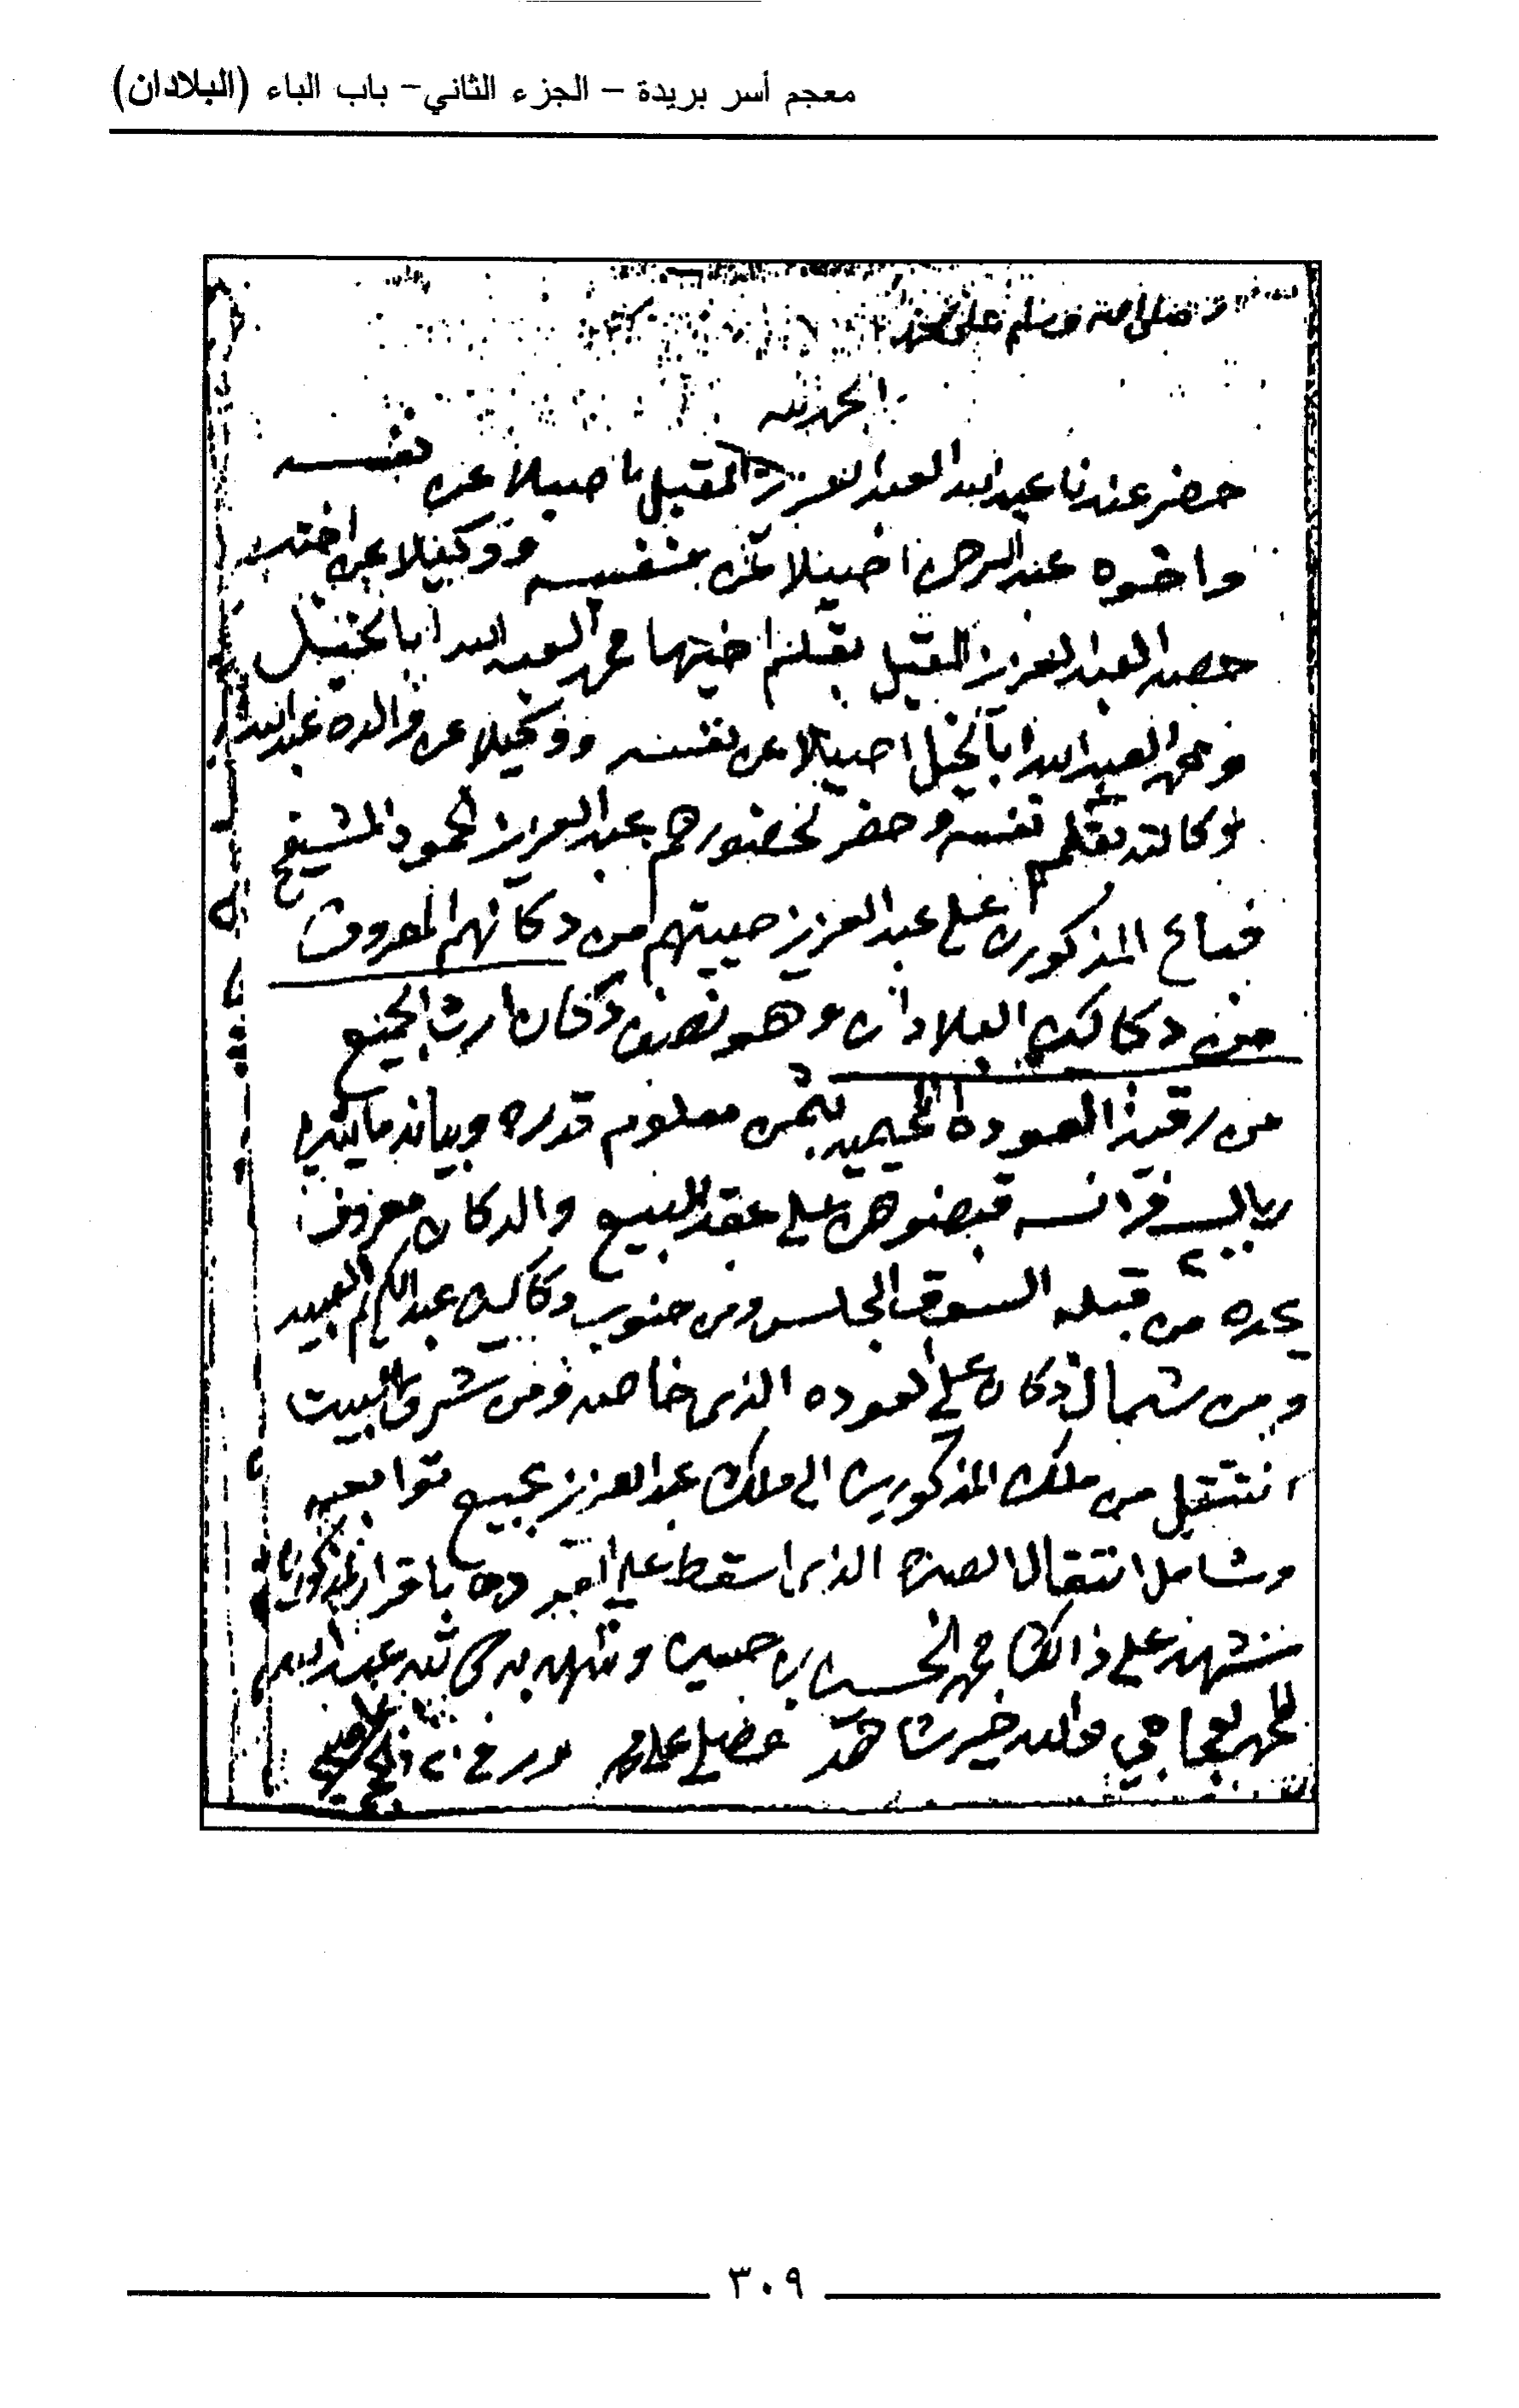 معجم أسر بريدة – الجزء الثاني– باب الباء (البلادان)
وصلى الله وسلم على محمد
الحمد لله
حضر عندنا عبد الله العبد العزيز المقبل اصيلا عن نفسه
واخوه عبد الرحمن اصيلا عن نفسه ووكيلا عن اخته
حصه العبد العزيز المقبل بقلم اخيها محمد العبد الله ابا الخيل
ومحمد العبد الله ابا الخيل اصيلا عن نفسه ووكيلا عن والده عبد الله
وكالته بقلم نفسه وحضر لحضورهم عبد العزيز الحمود المشيقح
فباع المذكورين على عبد العزيز صيبتهم من دكانهم المعروف
من دكاكين البلادان وهو نصف دكان ارث الجميع
من رقية العوده المحيميد بثمن معلوم قدره وبيانه مايتين
ريال فرانسه قبضوهن على عقد البيع والدكان معروف
٢٠٠
يحده من قبله السوق المجلس ومن جنوب دكاكين عبد الكريم العبيد
ومن شمال دكان علي العوده الذي خاصه ومن شرق البيت
انتقل من ملك المذكورين الى ملك عبد العزيز بجميع توابعه
وشامل انتقال الصبره الذي اسقط علي العوده باقرار المذكورين
شهد على ذالك محمد الحسين بن حسين وشهد به كاتبه عبد الله
المحمد العجاجي والله خير شاهد وصلى الله على محمد حرر في ٢٠ ذي الحجه
٣٠٩